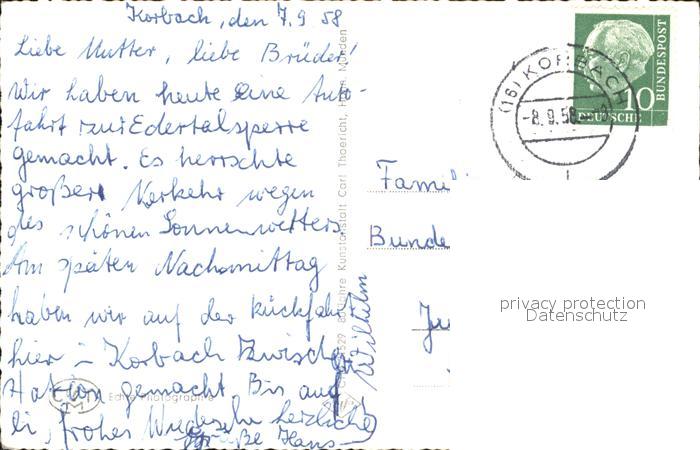 Korbach, den 7.9 58
Liebe Mutter, liebe Brüder!
Wir haben heute eine Auto-
fahrt zur Edertalsperre
gemacht. Es herrschte
großer Verkehr wegen
des schönen Sonnenwetters
Am späten Nachmittag
haben wir auf der Rückfah
hier in Korbach Zwische
Station gemacht. Bis auf
ein frohes Wiedersehn herzliche
Grüße Hans-
Wilhelm
Jahre Kunstanstalt Carl Thoericht, Hann. Münden
Echte Photographie
Fami
Bunde
Ju
(16) KORBACH
-8.9.58
10
DEUTSCHE
BUNDESPOST
privacy protection
Datenschutz